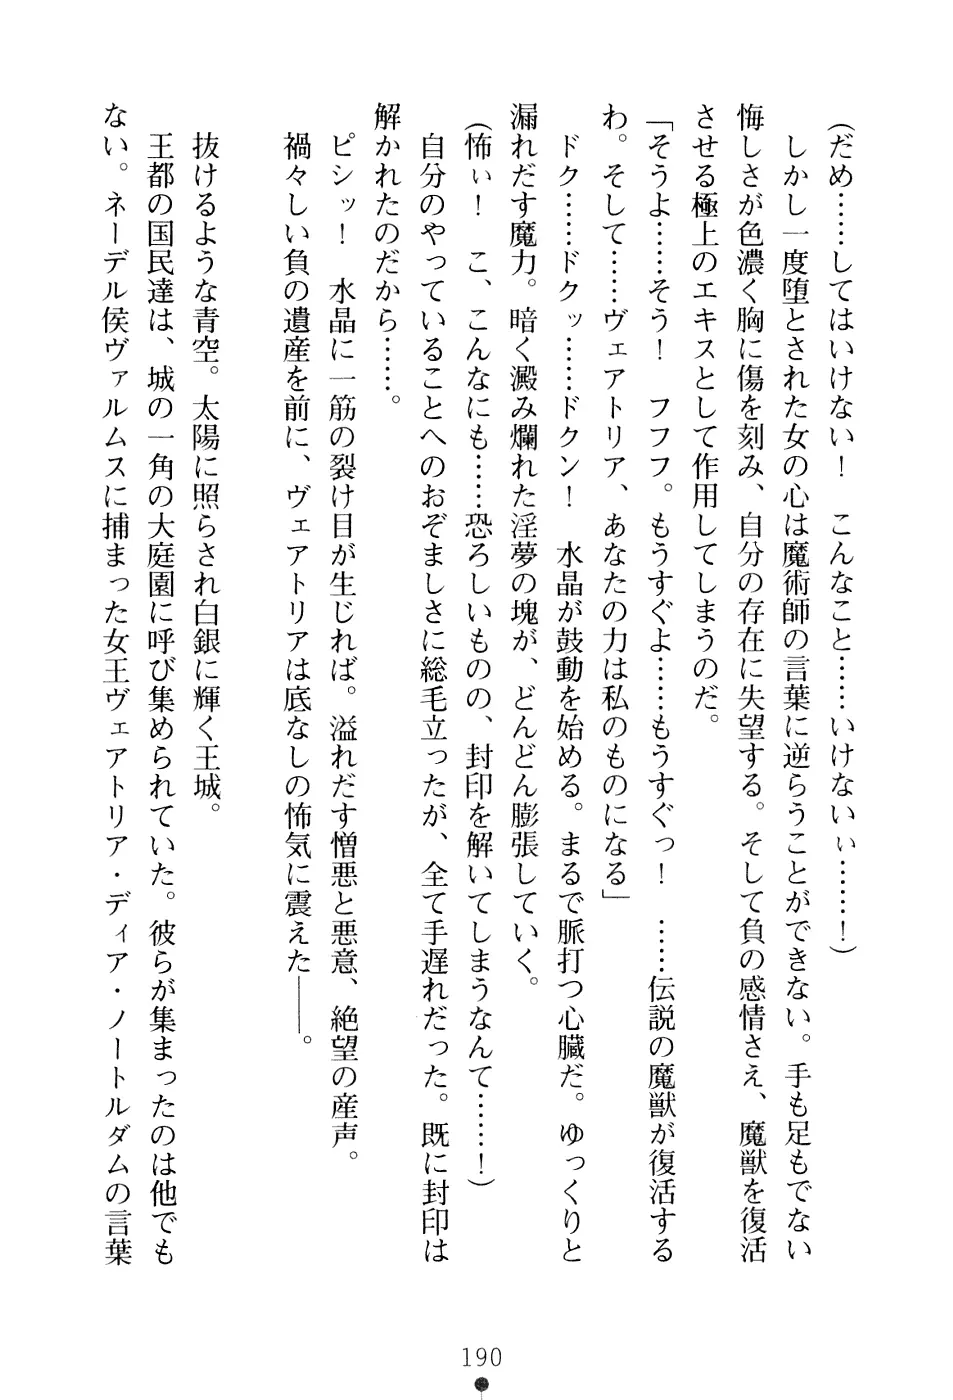 (だめ……してはいけない！　こんなこと……いけないぃ……！)
　しかし一度堕とされた女の心は魔術師の言葉に逆らうことができない。手も足もでない
悔しさが色濃く胸に傷を刻み、自分の存在に失望する。そして負の感情さえ、魔獣を復活
させる極上のエキスとして作用してしまうのだ。
「そうよ……そう！　フフフ。もうすぐよ……もうすぐっ！　……伝説の魔獣が復活する
わ。そして……ヴェアトリア、あなたの力は私のものになる」
　ドク……ドクッ……ドクン！　水晶が鼓動を始める。まるで脈打つ心臓だ。ゆっくりと
漏れだす魔力。暗く澱み爛れた淫夢の塊が、どんどん膨張していく。
(怖ぃ！　こ、こんなにも……恐ろしいものの、封印を解いてしまうなんて……！)
　自分のやっていることへのおぞましさに総毛立ったが、全て手遅れだった。既に封印は
解かれたのだから……。
　ピシッ！　水晶に一筋の裂け目が生じれば。溢れだす憎悪と悪意、絶望の産声。
　禍々しい負の遺産を前に、ヴェアトリアは底なしの怖気に震えた――。
　抜けるような青空。太陽に照らされ白銀に輝く王城。
　王都の国民達は、城の一角の大庭園に呼び集められていた。彼らが集まったのは他でも
ない。ネーデル侯ヴァルムスに捕まった女王ヴェアトリア・ディア・ノートルダムの言葉
190